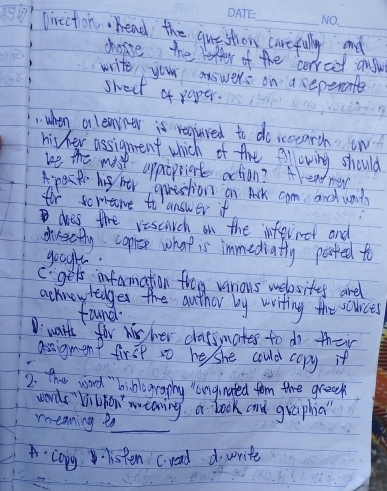 DATE: NO.
Direction. Read the question carefully and
choose the letter of the correct answ
write your answers on a seperate
sheet of paper.
1. when a learner is required to do research on
his/her assigment which of the following should
be the most appropriate action? A learner
A. posts his/her question on Ask.com and waits
for someone to answer it
B does the research on the internet and
directly copies what is immediatly posted to
google.
C. gets information from various websites and
acknowledges the author by writing the sources
found.
D. waits for his/her classmates to do their
assigment first so he/she could copy it
2. The word bibliography "originated fom the greek
words "biblion" meaning a book and graphia"
meaning to
A. Copy B. listen C. read d. write